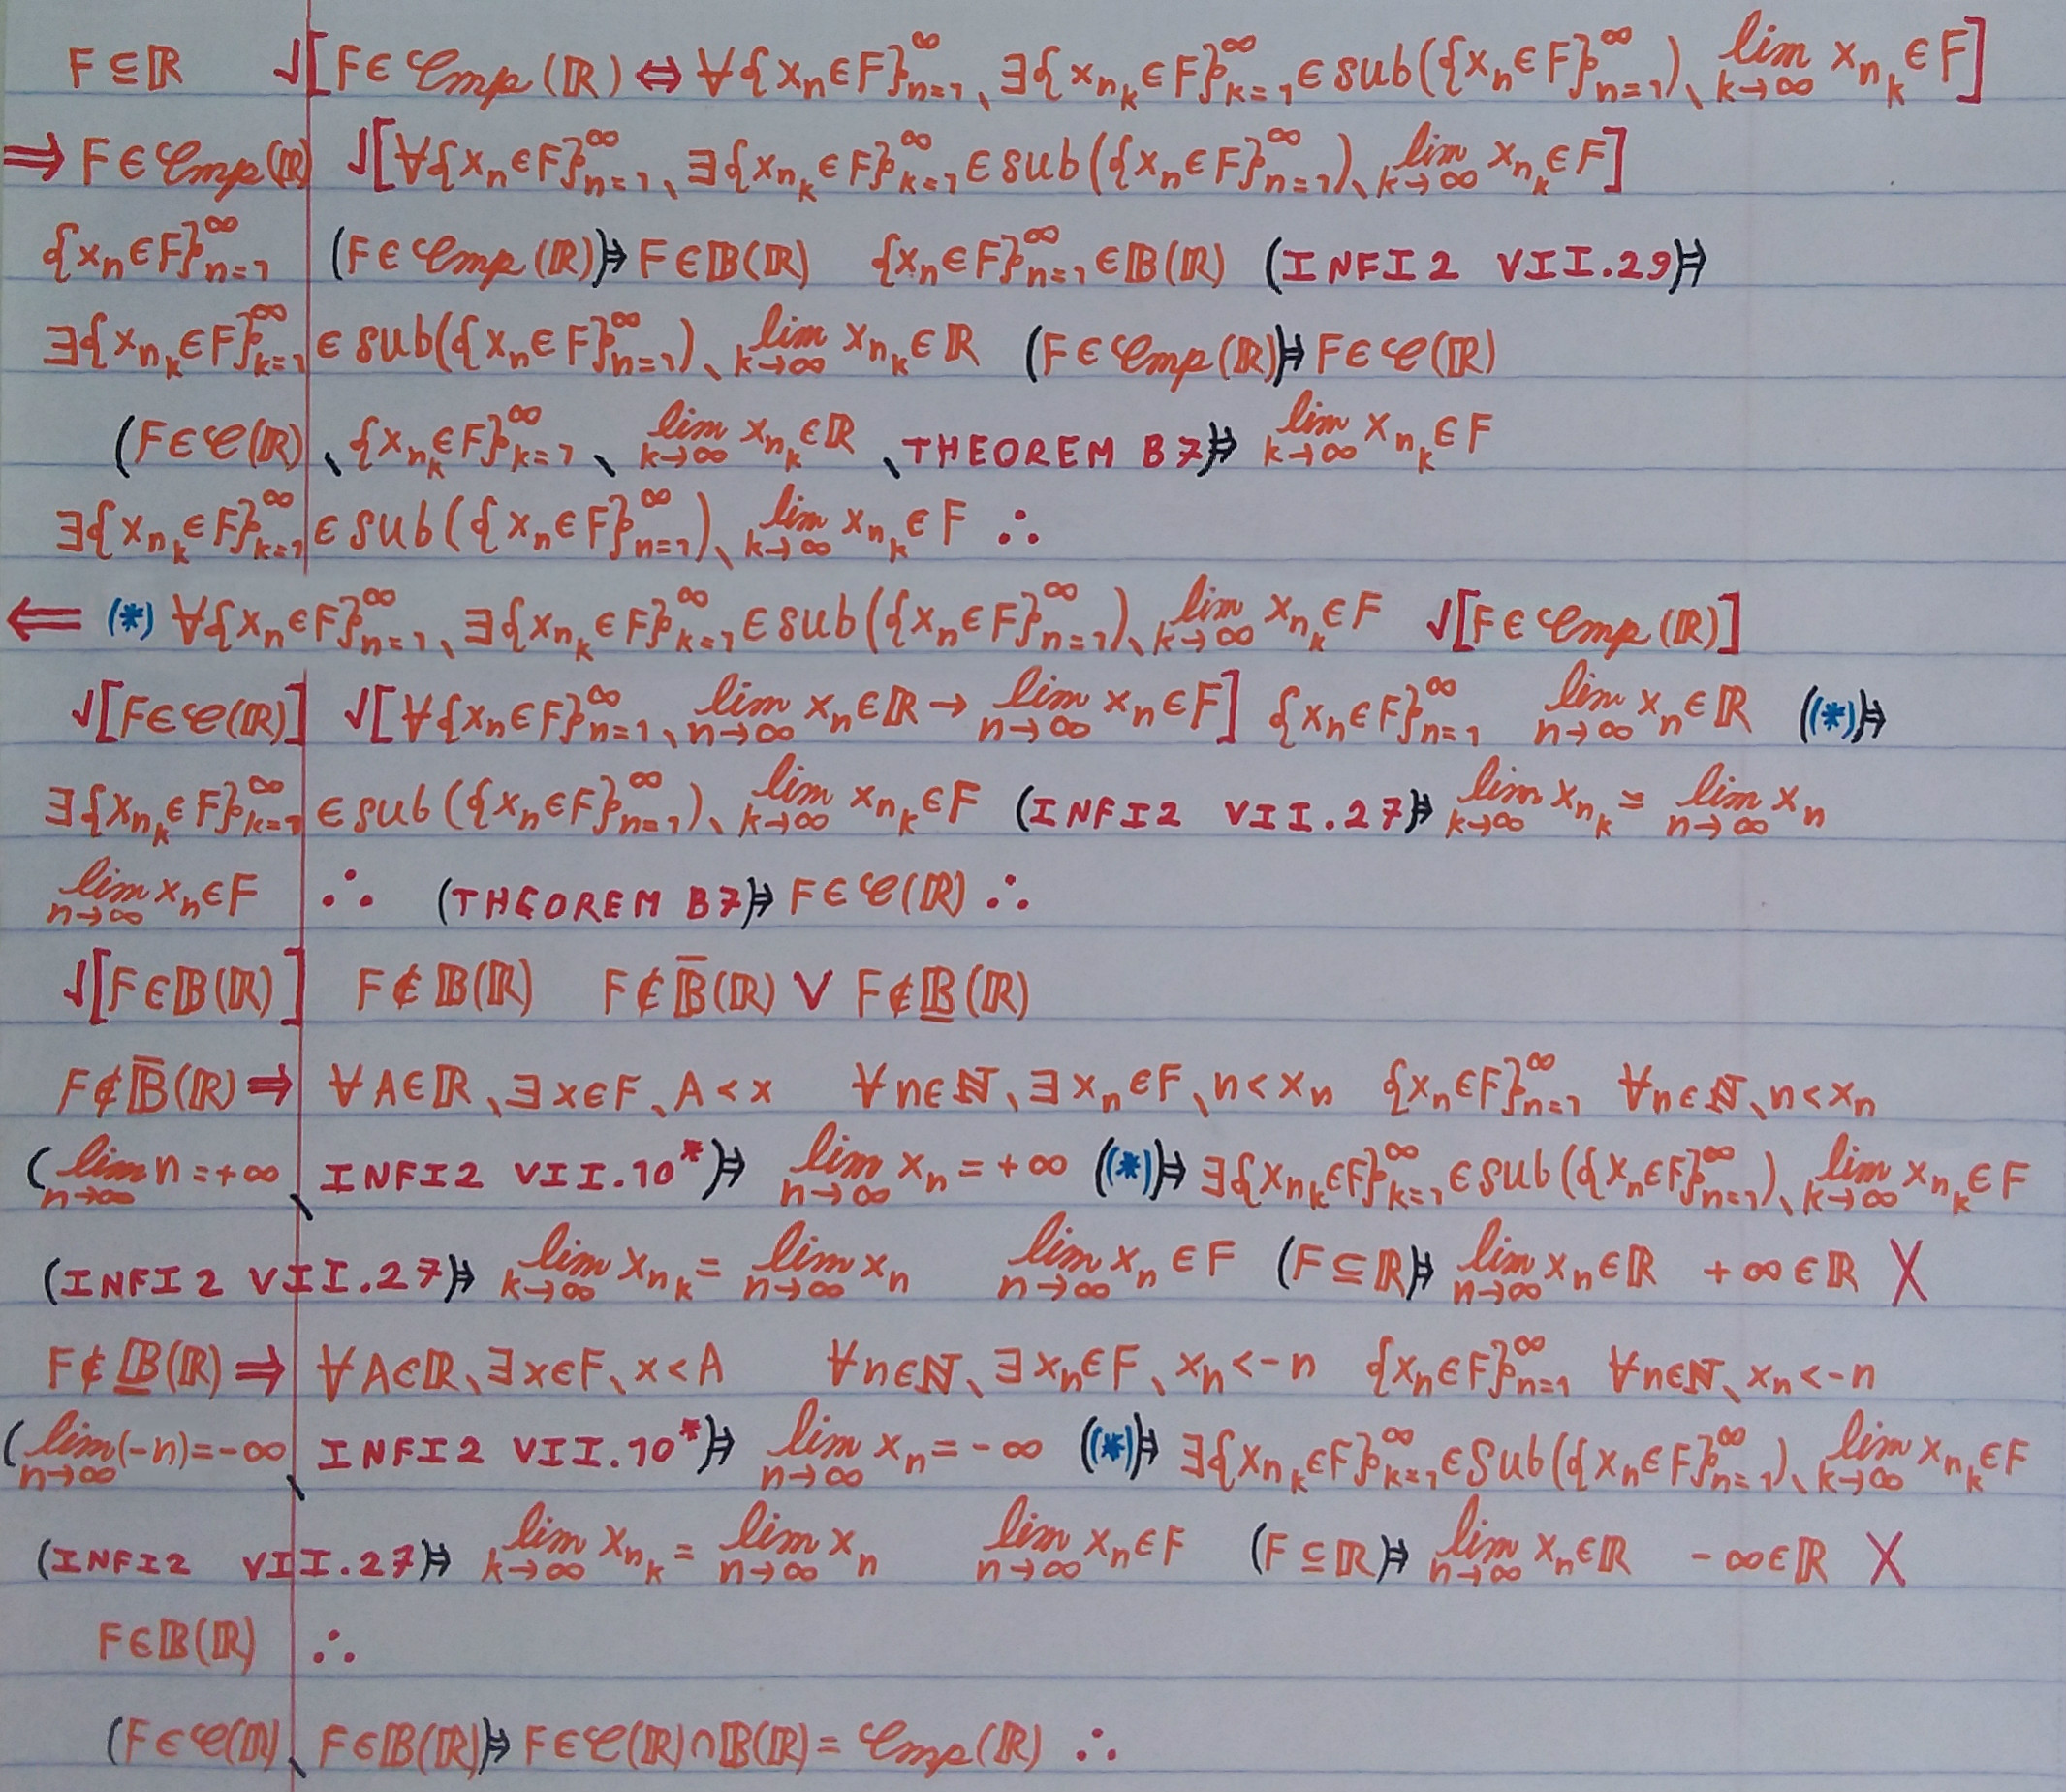 F ⊆ ℝ √[F ∈ 𝒞mp(ℝ) ⇔ ∀{xₙ∈F}ₙ₌₁^∞、∃{x_{n_k}∈F}ₖ₌₁^∞ ∈ sub({xₙ∈F}ₙ₌₁^∞)、lim_{k→∞} x_{n_k} ∈ F]
⇒ F ∈ 𝒞mp(ℝ) √[∀{xₙ∈F}ₙ₌₁^∞、∃{x_{n_k}∈F}ₖ₌₁^∞ ∈ sub({xₙ∈F}ₙ₌₁^∞)、lim_{k→∞} x_{n_k} ∈ F]
{xₙ∈F}ₙ₌₁^∞ (F ∈ 𝒞mp(ℝ))⊨ F ∈ 𝔹(ℝ) {xₙ∈F}ₙ₌₁^∞ ∈ 𝔹(ℝ) (INFI2 VII.29)⊨
∃{x_{n_k}∈F}ₖ₌₁^∞ ∈ sub({xₙ∈F}ₙ₌₁^∞)、lim_{k→∞} x_{n_k} ∈ ℝ (F ∈ 𝒞mp(ℝ))⊨ F ∈ 𝒞(ℝ)
(F ∈ 𝒞(ℝ)、{x_{n_k}∈F}ₖ₌₁^∞、lim_{k→∞} x_{n_k} ∈ ℝ、THEOREM B7)⊨ lim_{k→∞} x_{n_k} ∈ F
∃{x_{n_k}∈F}ₖ₌₁^∞ ∈ sub({xₙ∈F}ₙ₌₁^∞)、lim_{k→∞} x_{n_k} ∈ F ∴
⇐ (*) ∀{xₙ∈F}ₙ₌₁^∞、∃{x_{n_k}∈F}ₖ₌₁^∞ ∈ sub({xₙ∈F}ₙ₌₁^∞)、lim_{k→∞} x_{n_k} ∈ F √[F ∈ 𝒞mp(ℝ)]
√[F ∈ 𝒞(ℝ)] √[∀{xₙ∈F}ₙ₌₁^∞、lim_{n→∞} xₙ ∈ ℝ → lim_{n→∞} xₙ ∈ F] {xₙ∈F}ₙ₌₁^∞ lim_{n→∞} xₙ ∈ ℝ ((*))⊨
∃{x_{n_k}∈F}ₖ₌₁^∞ ∈ sub({xₙ∈F}ₙ₌₁^∞)、lim_{k→∞} x_{n_k} ∈ F (INFI2 VII.27)⊨ lim_{k→∞} x_{n_k} = lim_{n→∞} xₙ
lim_{n→∞} xₙ ∈ F ∴ (THEOREM B7)⊨ F ∈ 𝒞(ℝ) ∴
√[F ∈ 𝔹(ℝ)] F ∉ 𝔹(ℝ) F ∉ 𝔹̅(ℝ) ∨ F ∉ 𝔹̲(ℝ)
F ∉ 𝔹̅(ℝ) ⇒ ∀A∈ℝ、∃x∈F、A < x ∀n∈ℕ、∃xₙ∈F、n < xₙ {xₙ∈F}ₙ₌₁^∞ ∀n∈ℕ、n < xₙ
(lim_{n→∞} n = +∞、INFI2 VII.10*)⊨ lim_{n→∞} xₙ = +∞ ((*))⊨ ∃{x_{n_k}∈F}ₖ₌₁^∞ ∈ sub({xₙ∈F}ₙ₌₁^∞)、lim_{k→∞} x_{n_k} ∈ F
(INFI2 VII.27)⊨ lim_{k→∞} x_{n_k} = lim_{n→∞} xₙ lim_{n→∞} xₙ ∈ F (F ⊆ ℝ)⊨ lim_{n→∞} xₙ ∈ ℝ +∞ ∈ ℝ X
F ∉ 𝔹̲(ℝ) ⇒ ∀A∈ℝ、∃x∈F、x < A ∀n∈ℕ、∃xₙ∈F、xₙ < -n {xₙ∈F}ₙ₌₁^∞ ∀n∈ℕ、xₙ < -n
(lim_{n→∞} (-n) = -∞、INFI2 VII.10*)⊨ lim_{n→∞} xₙ = -∞ ((*))⊨ ∃{x_{n_k}∈F}ₖ₌₁^∞ ∈ sub({xₙ∈F}ₙ₌₁^∞)、lim_{k→∞} x_{n_k} ∈ F
(INFI2 VII.27)⊨ lim_{k→∞} x_{n_k} = lim_{n→∞} xₙ lim_{n→∞} xₙ ∈ F (F ⊆ ℝ)⊨ lim_{n→∞} xₙ ∈ ℝ -∞ ∈ ℝ X
F ∈ 𝔹(ℝ) ∴
(F ∈ 𝒞(ℝ)、F ∈ 𝔹(ℝ))⊨ F ∈ 𝒞(ℝ) ∩ 𝔹(ℝ) = 𝒞mp(ℝ) ∴